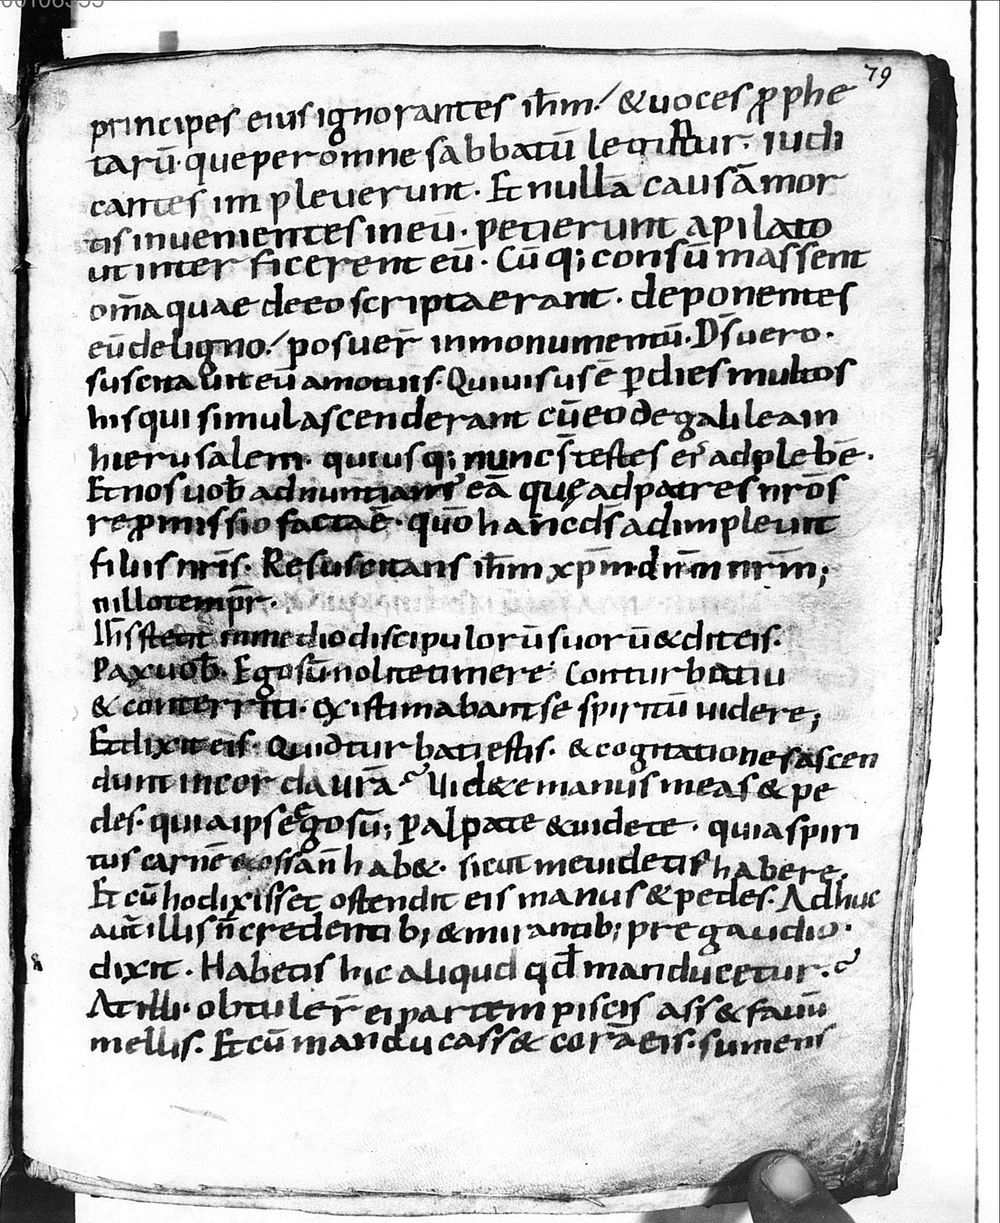 00106555
79
principes eius ignorantes ih̄m. & uoces p̱phe
tarū. que per omne sabbatū leguntur. iudi
cantes impleuerunt. Et nullā causā mor
tis inuenientes in eū. petierunt a pilato
ut interficerent eū. Cū q; consūmassent
om̄a quae de eo scripta erant. deponentes
eū de ligno. posuer̄ in monumentū. Ds̄ uero.
suscitauit eū a mortuis. Qui uisus ē p̱ dies multos
his qui simul ascenderant cū eo de galilea in
hierusalem. qui usq; nunc s̄ testes ei᾽ ad plebē.
Et nos uob̄ adnuntiam᾽ eā quę ad patres nr̄os
repromissio facta ē. qūo hanc ds̄ adimpleuit
filiis nr̄is. Resuscitans ih̄m xp̄m dn̄m nr̄m;
In illo tempr̄.
Ih̄s stetit in medio discipulorū suorū & dit eis.
Pax uob̄. Ego sū nolite timere. Conturbati u
& conterriti. existimabant se spiritū uidere;
Et dixit eis. Quid turbati estis. & cogitationes ascen
dunt in cor da urā. Uidete manus meas & pe
des. quia ipse ego sū; palpate & uidete. quia spiri
tus carnē & ossa n̄ hab&. sicut me uidetis habere.
Et cū hoc dixisset ostendit eis manus & pedes. Adhuc
aut̄ illis n̄ credentib; & mirantib; pre gaudio.
dixit. Habetis hic aliqud qd̄ manducetur.
At illi. obtuler̄ ei partem piscis ass& fauū
mellis. Et cū manducass& corā eis. sumens